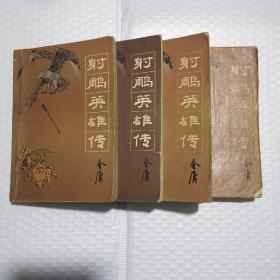 射鵰英雄传
金庸
射鵰英雄传
金庸
射鵰英雄传
金庸
射鵰英雄传
金庸